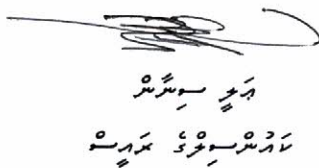 ޢަލީ ސިނާން
ކައުންސިލްގެ ރައީސް